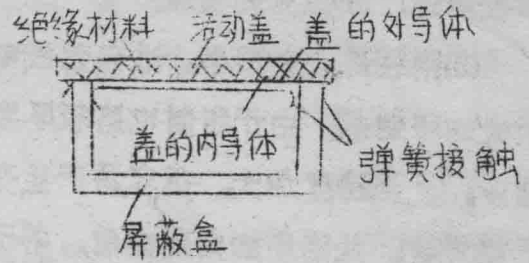 绝缘材料 活动盖 盖的外导体
盖的内导体
弹簧接触
屏蔽盒